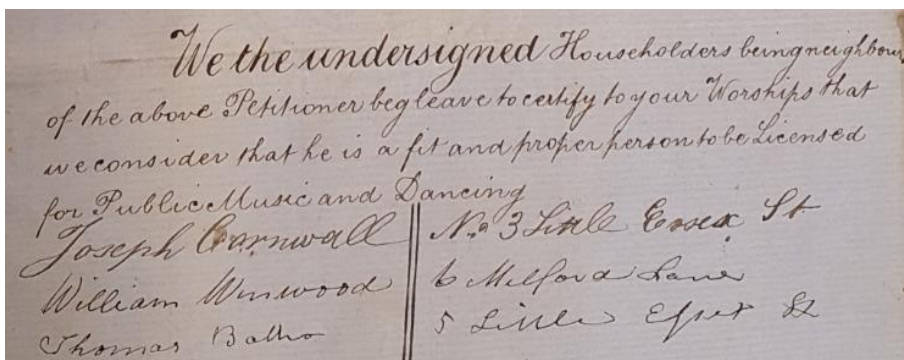 We the undersigned Householders being neighbour
of the above Petitioner beg leave to certify to your Worships that
we consider that he is a fit and proper person to be Licensed
for Public Music and Dancing
Joseph Cornwall No 3 Little Essex St
William Winwood 6 Milford Lane
Thomas 5 Little Essex St